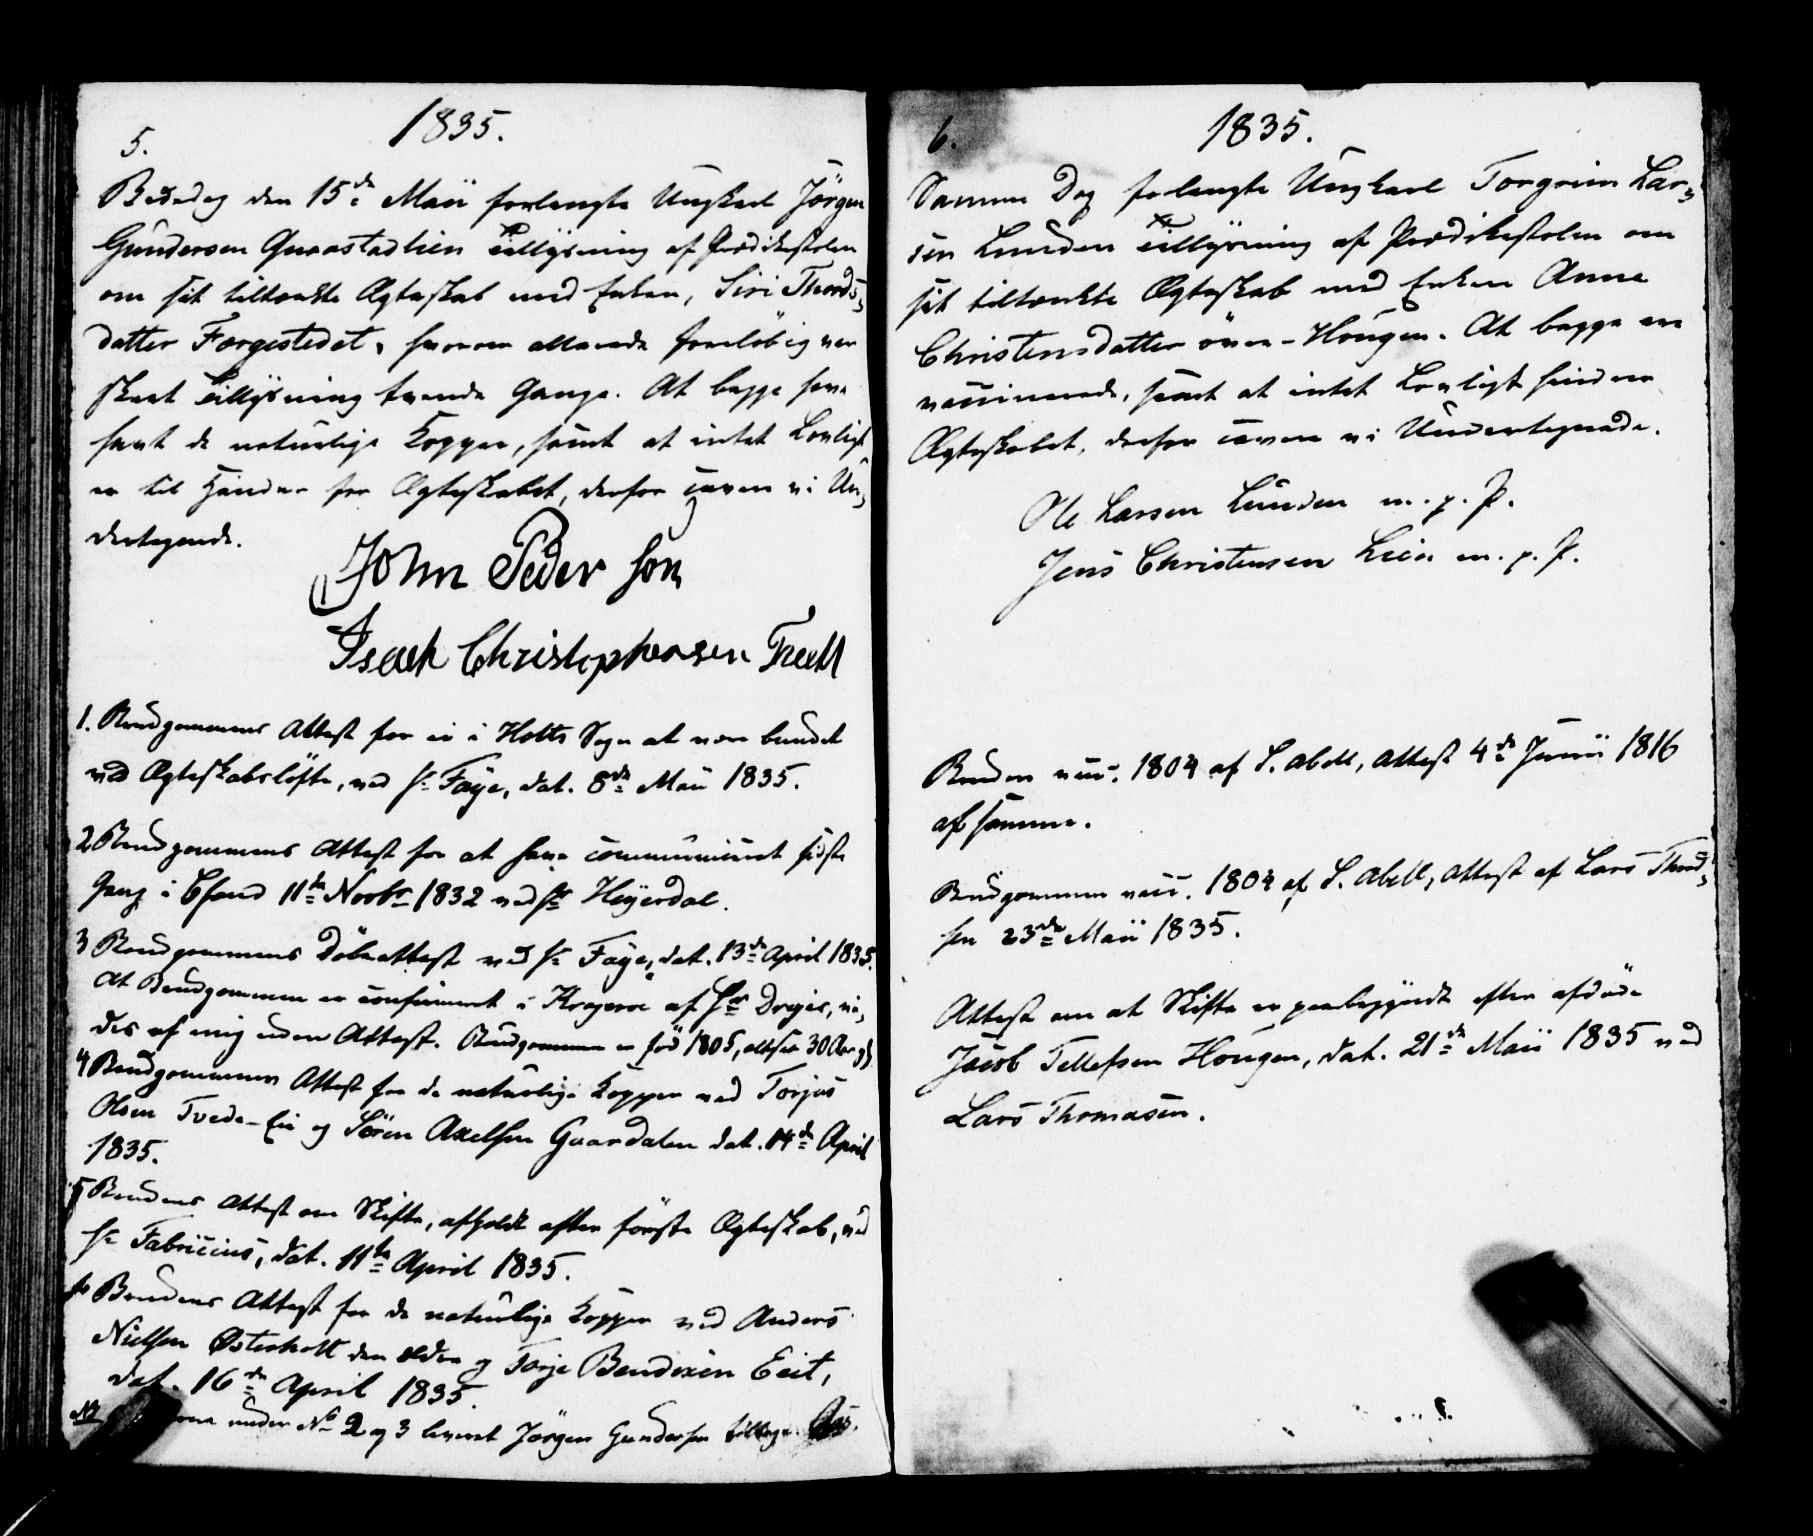 1835.
5.
Bededag den 15de Maii forlangte Ungkarl Jörgen
Gundersen Qvaastadlien Tillysning af Prædikestolen
om sit tiltænkte Ægteskab med Enken, Siri Thords-
datter Forgestedet, hvorom allerede foreløbig var
skeet Tillysning trende Gange. At begge have
havt de naturlige Kopper, samt at intet Lovligt
er til Hinder for Ægteskabet, derfor caverer vi Un-
dertegnede.
John Peder søn
Isack Christophersen Tveett
1. Brudgommens Attest for ei i Holts Sogn at være bundet
ved Ægteskabsløfte, ved Hr Faye, dat. 8de Maii 1835.
2 Brudgommens Attest for at have communiceret sidste
Gang i 11te Novbr 1832 ved Hr Heyerdal.
3 Brudgommens Döbeattest ved Hr Faye, dat. 13de April 1835.
At Brudgommen er confirmeret i Krageroe af Hr
des af mig uden Attest. Brudgommen er föd 1805, altsaa 30 Aar gl.
4 Brudgommens Attest for de naturlige Kopper ved Torjus
Olsen Tvede-Eie og Sören Axelsen Gaardalen dat. 14de April
1835.
5 Brudens Attest om Skifte, afholdt efter første Ægteskab, ved
Hr Fabricius, dat. 11te April 1835.
6 Brudens Attest for de naturlige Kopper ved Anders
Nielsen Østerholt den ældre og Torje Bendixen Eeit,
dat. 16de April 1835.
NB under No 2 og 3 leveret Jörgen Gundersen tilbage.
1835.
6.
Samme Dag forlangte Ungkarl Torgrim Lar-
sen Lunden Tillysning af Prædikestolen om
sit tiltænkte Ægteskab med Enken Anne
Christensdatter övre-Hougen. At begge ere
vaccinerede, samt at intet Lovligt hindrer
Ægteskabet, derfor caverer vi Undertegnede.
Ole Larsen Lunden m. p. P.
Jens Christensen Lien m. p. P.
Bruden vacc. 1804 af S. Abell, Attest 4de Junii 1816
af samme.
Brudgommen vacc. 1804 af S. Abell, Attest af Lars Thomas-
sen 23de Maii 1835.
Attest om at Skifte er paabegyndt efter afdöde
Jacob Tellefsen Hougen, dat. 21de Maii 1835 ved
Lars Thomasen.